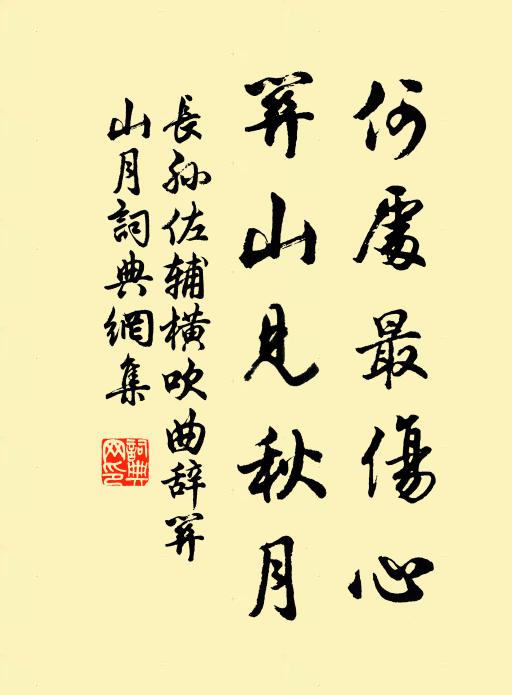 何處最傷心
關山見秋月
長孙佐辅橫吹曲辞關
山月詞典網集
詞典
网印